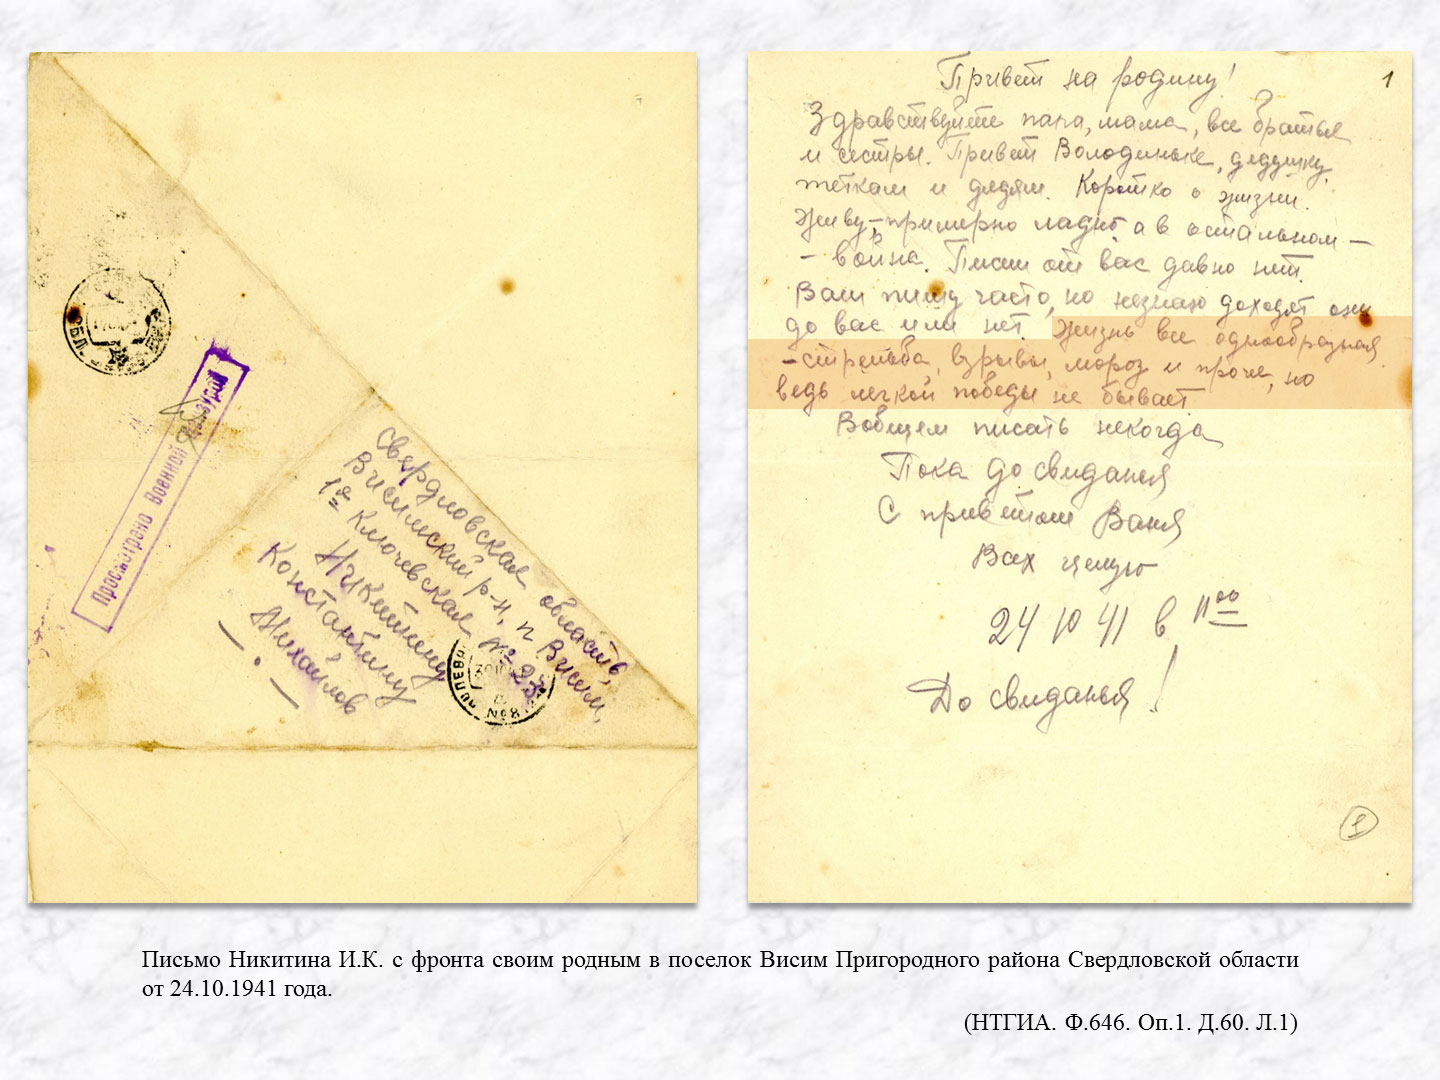 ОБЛ.
Просмотрено Военной Цензурой
Свердловская область,
Висимский р-н, п Висим,
1я Ключевская № 23
Никитину
Константину
Михайлов
ПОЛЕВАЯ
№8
1
Привет на родину!
Здравствуйте папа, мама, все братья
и сестры. Привет Володиньке, дедушку,
тёткам и дядям. Коротко о жизни.
Живу, примерно ладно, а в остальном –
– война. Писем от вас давно нет.
Вам пишу часто, но незнаю доходят они
до вас или нет. Жизнь все однообразная
– стрельба, взрывы, мороз и проче, но
ведь лёгкой победы не бывает
Вобщем писать некогда
Пока до свиданья
С приветом Ваня
Всех целую
24 10 41 в 11 00
До свиданья!
1
Письмо Никитина И.К. с фронта своим родным в поселок Висим Пригородного района Свердловской области
от 24.10.1941 года.
(НТГИА. Ф.646. Оп.1. Д.60. Л.1)